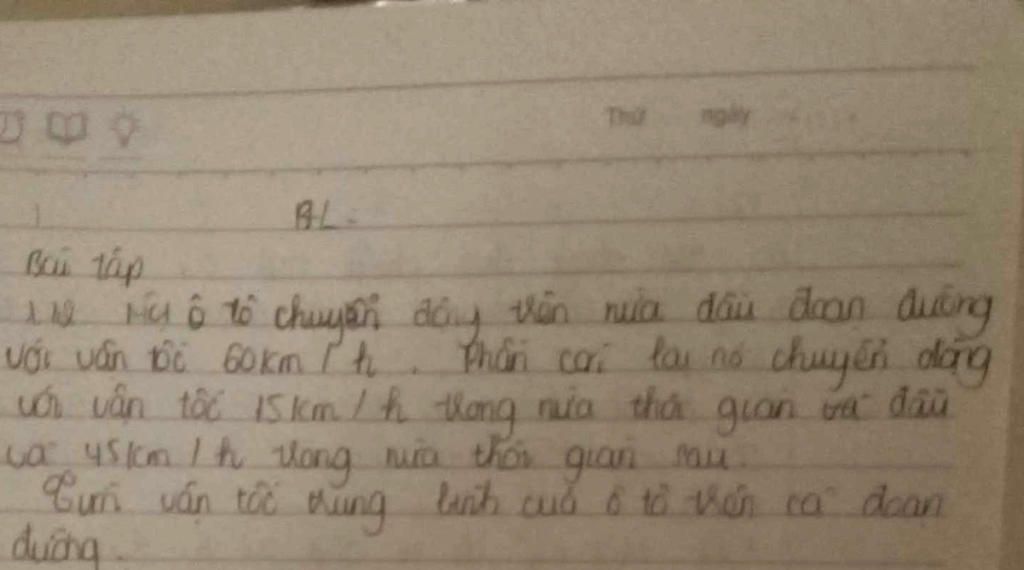 Thứ ngày
BL
Bài tập
Một ô tô chuyển động trên nửa đầu đoạn đường
với vận tốc 60km/h. Phần còn lại nó chuyển động
với vận tốc 15km/h trong nửa thời gian đầu
và 45km/h trong nửa thời gian sau.
vận tốc trung bình của ô tô trên cả đoạn
đường.